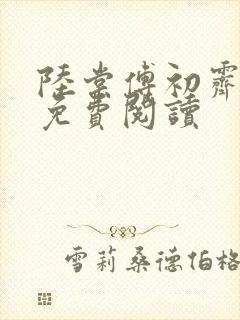 陸棠傅初霽
免費閱讀
雪莉桑德伯格